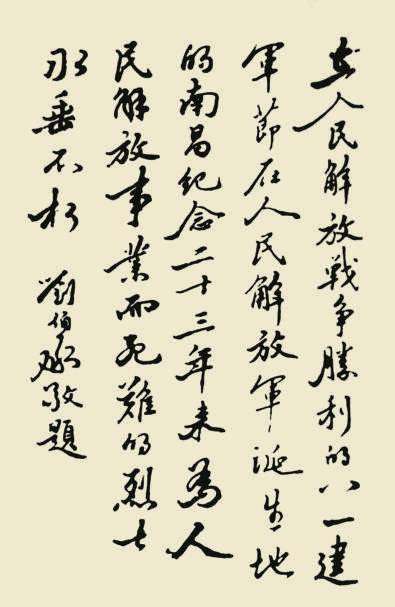 在人民解放戰争勝利的八一建
軍節在人民解放軍誕生地
的南昌紀念二十三年来為人
民解放事業而死難的烈士
永垂不朽 劉伯承敬題